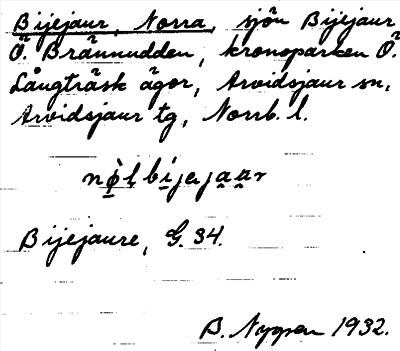 Bijejaur, Norra, sjön Bijejaur
Ö. Brännudden, kronoparken Ö.
Långträsk ägor, Arvidsjaur sn,
Arvidsjaur tg, Norrb. l.
Bijejaure, G. 34.
B. Nygren 1932.